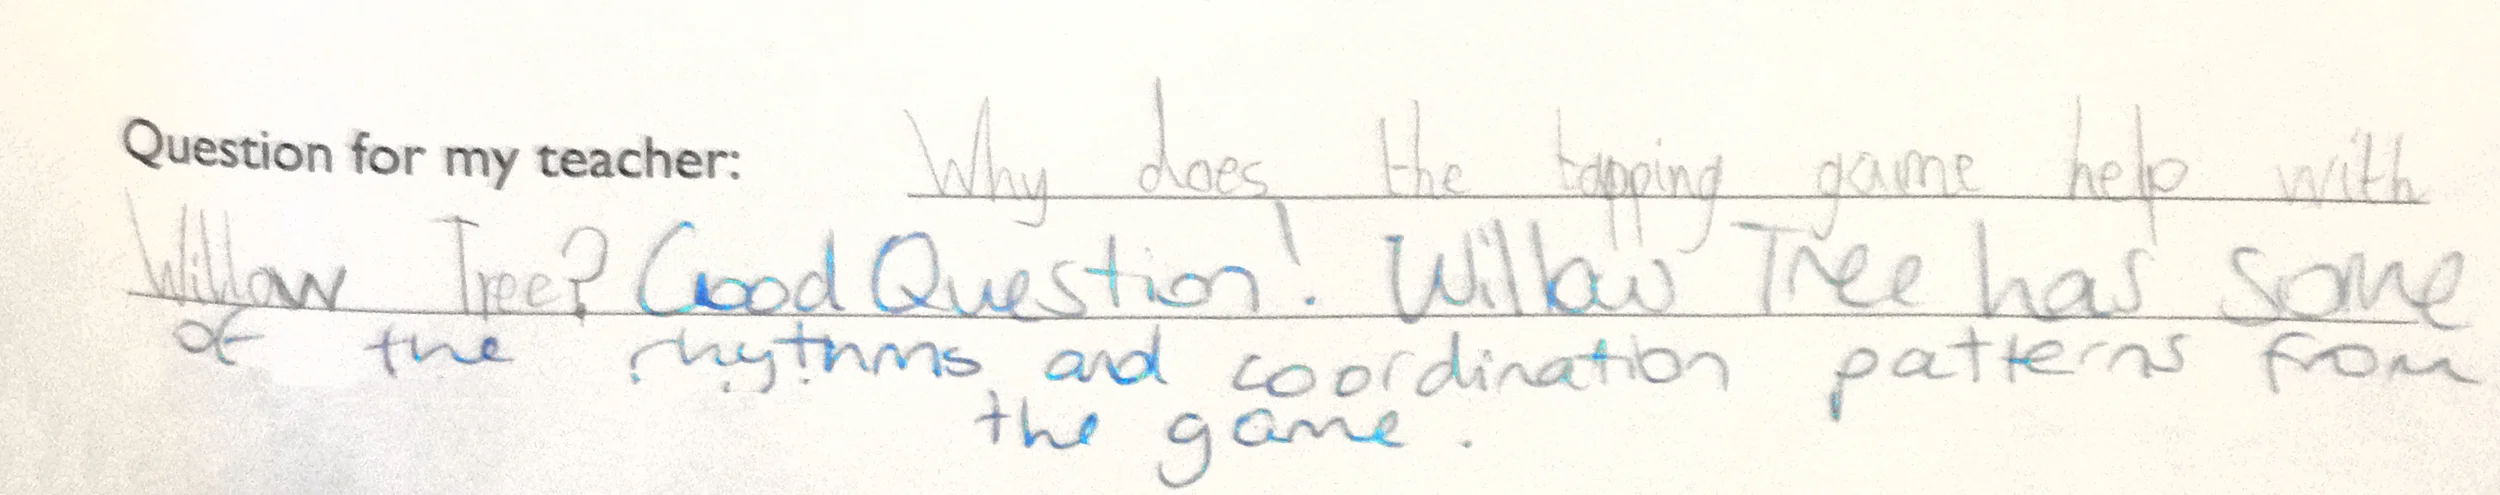 Question for my teacher: Why does the tapping game help with
Willow Tree? Good Question! Willow Tree has some
of the rhythms and coordination patterns from
the game.